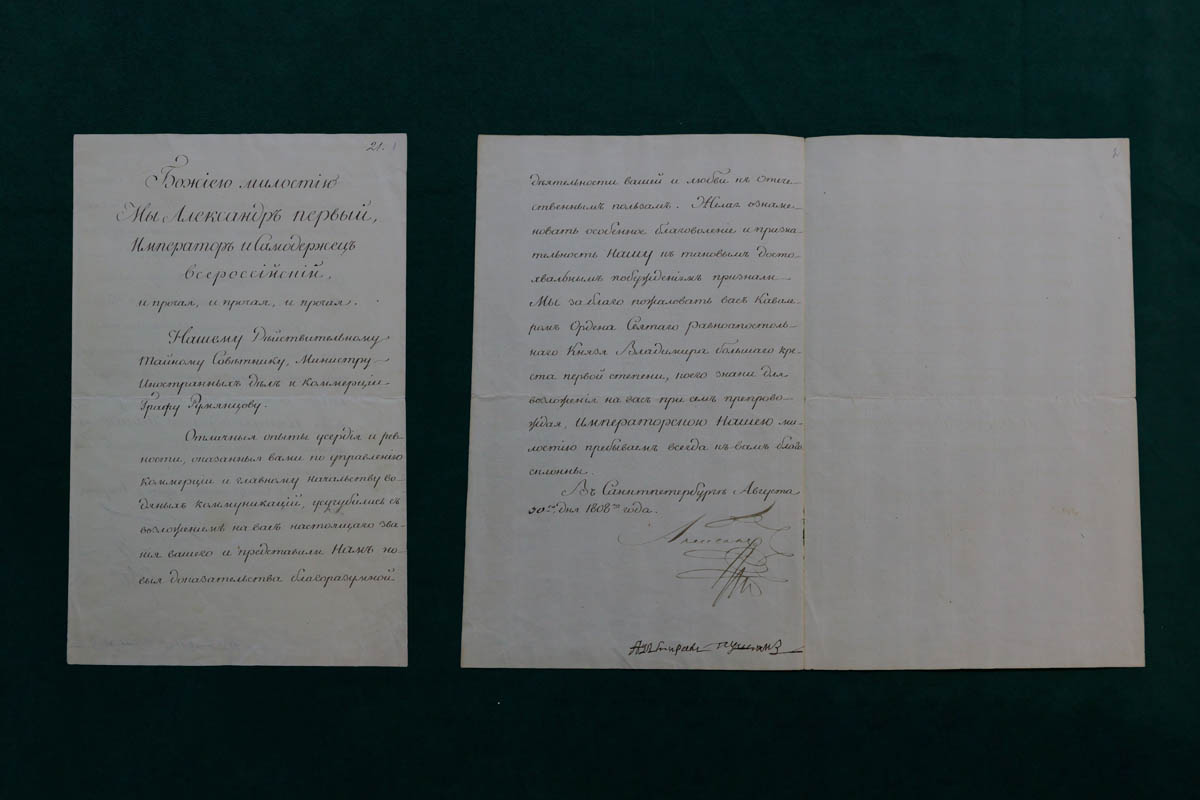 21.
Божіею милостію
Мы Александръ первый,
Императоръ и Самодержецъ
Всероссійскій,
и прочая, и прочая, и прочая.
Нашему Дѣйствительному
Тайному Совѣтнику, Министру
Иностранныхъ дѣлъ и Коммерціи
Графу Румянцову.
Отличныя опыты усердія и рев-
ности, оказанныя вами по управленію
коммерціи и главному начальству во-
дяныхъ коммуникацій, усугубились съ
возложеніемъ на васъ настоящаго зва-
нія вашего и представили Намъ но-
выя доказательства благоразумной
дѣятельности вашей и любви къ отече-
ственнымъ пользамъ. Желая ознаме-
новать особенное благоволеніе и призна-
тельность Нашу къ таковымъ досто-
хвальнымъ побужденіямъ признали
Мы за благо пожаловать васъ Кавале-
ромъ Ордена Святаго равноапостоль-
наго Князя Владимира большаго кре-
ста первой степени, коего знаки для
возложенія на васъ при семъ препрово-
ждая, Императорскою Нашею ми-
лостію пребываемъ всегда къ вамъ благо
склонны.
Въ Санктпетербургѣ Августа
30го дня 1808го года.
Александръ